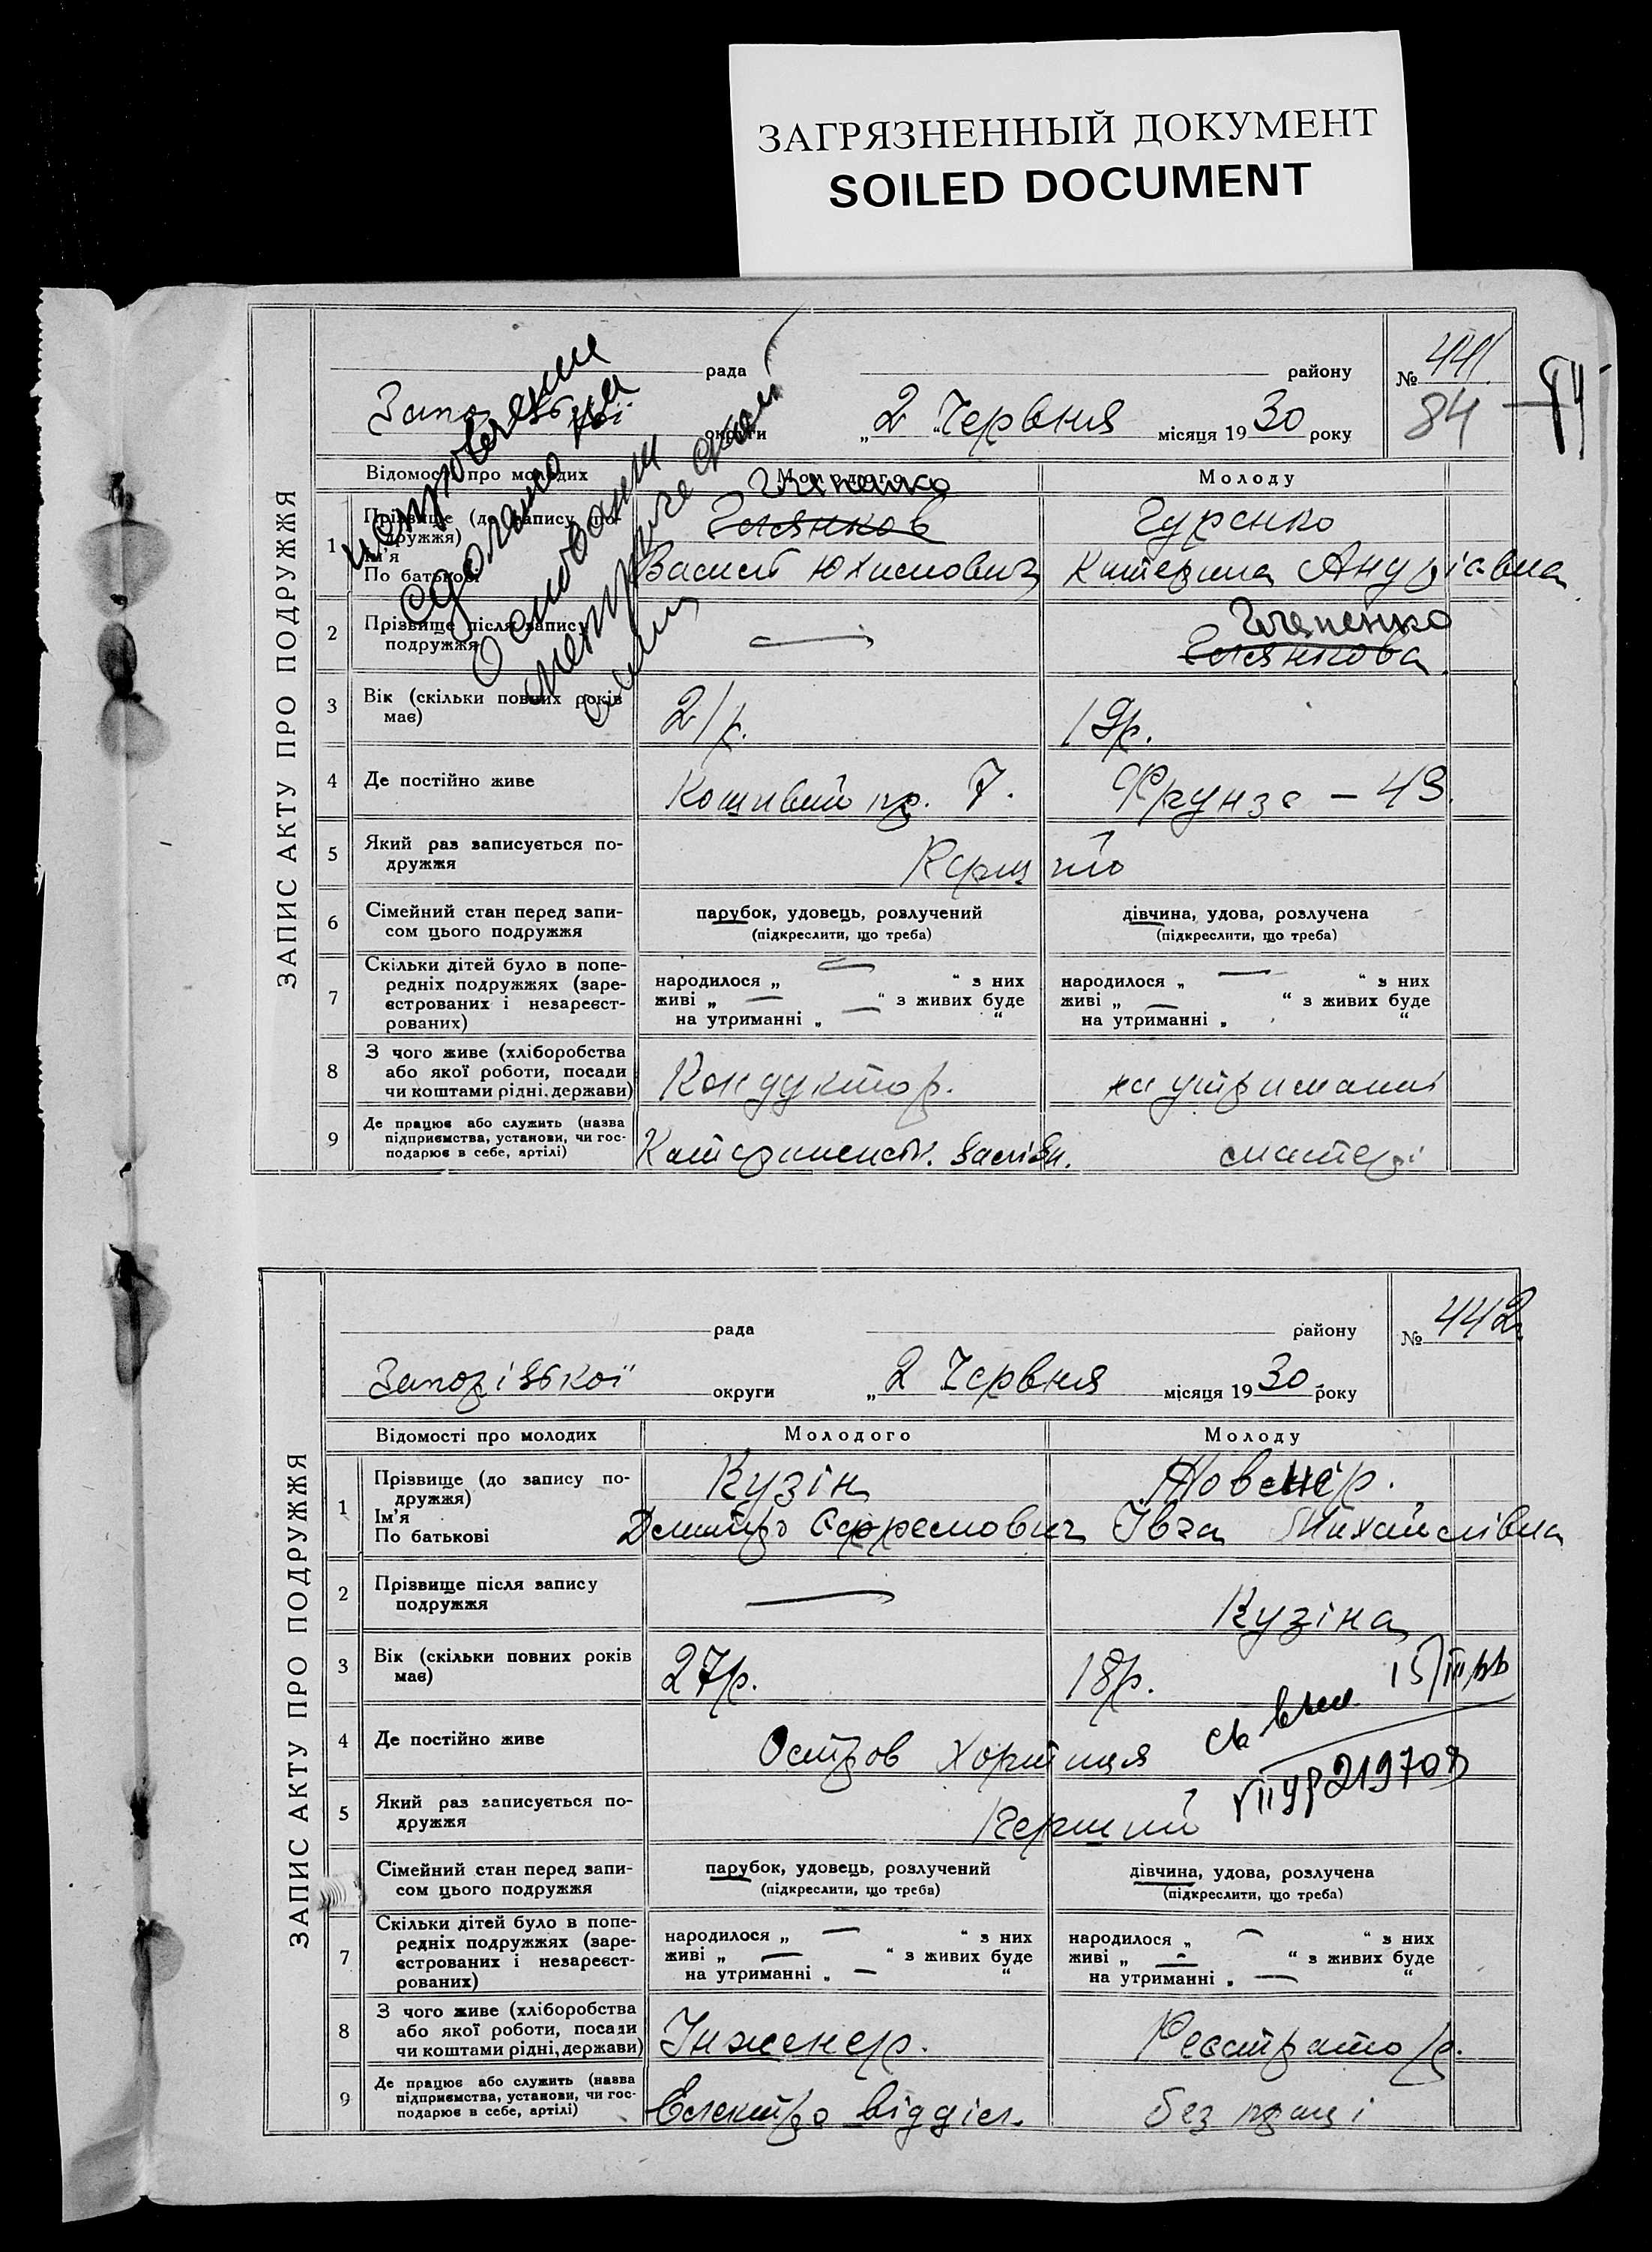 ЗАГРЯЗНЕННЫЙ ДОКУМЕНТ
SOILED DOCUMENT
ЗАПИС АКТУ ПРО ПОДРУЖЖЯ
рада району № 441
84
округи „2 Червня місяця 1930 року
Відомості про молодих Молодого Молоду
1 Прізвище (до запису подружжя)
Ім'я
По батькові
Гуренко
Василь Юхимович Катерина Андріївна
2 Прізвище після запису
подружжя
3 Вік (скільки повних років
має) 21р. 19р.
4 Де постійно живе 7. Фрунзе – 43.
5 Який раз записується по-
дружжя Перший
6 Сімейний стан перед запи-
сом цього подружжя
парубок, удовець, розлучений дівчина, удова, розлучена
(підкреслити, що треба) (підкреслити, що треба)
7 Скільки дітей було в попе-
редніх подружжях (заре-
єстрованих і незареєст-
рованих)
народилося „ — “ з них народилося „ — “ з них
живі „ — “ з живих буде живі „ — “ з живих буде
на утриманні „ — “ на утриманні „ “
8 З чого живе (хліборобства
або якої роботи, посади
чи коштами рідні, держави)
Кондуктор. на утриманні
9 Де працює або служить (назва
підприємства, установи, чи гос-
подарює в себе, артілі)
матері
исправления
сделано на
основании
ЗАПИС АКТУ ПРО ПОДРУЖЖЯ
рада району № 442
Запорізької округи „2 Червня місяця 1930 року
Відомості про молодих Молодого Молоду
1 Прізвище (до запису по-
дружжя)
Ім'я
По батькові
Кузін
Дмитро Єфремович Івга Михайлівна
2 Прізвище після запису
подружжя — Кузіна
3 Вік (скільки повних років
має) 27р. 18р.
4 Де постійно живе Острів Хортиця
5 Який раз записується по-
дружжя Перший
Сімейний стан перед запи-
сом цього подружжя
парубок, удовець, розлучений дівчина, удова, розлучена
(підкреслити, що треба) (підкреслити, що треба)
7 Скільки дітей було в попе-
редніх подружжях (заре-
єстрованих і незареєст-
рованих)
народилося „ — “ з них народилося „ — “ з них
живі „ — “ з живих буде живі „ — “ з живих буде
на утриманні „ — “ на утриманні „ — “
8 З чого живе (хліборобства
або якої роботи, посади
чи коштами рідні, держави)
Інженер. Реєстратор.
9 Де працює або служить (назва
підприємства, установи, чи гос-
подарює в себе, артілі)
Електро відділ. без праці